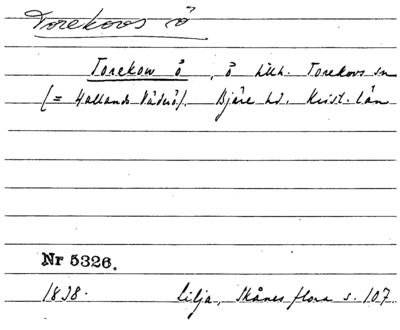 Torekovs ö
Torekow ö, ö tillh. Torekovs sn
(= Hallands Väderö). Bjäre hd. Krist. län
Nr 5326.
1838. Lilja, Skånes flora s. 107.